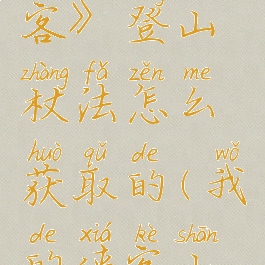 客》登山
zhàng fǎ zěn me
杖法怎么
huò qǔ de wǒ
获取的(我
de xiá kè shān
的侠客山